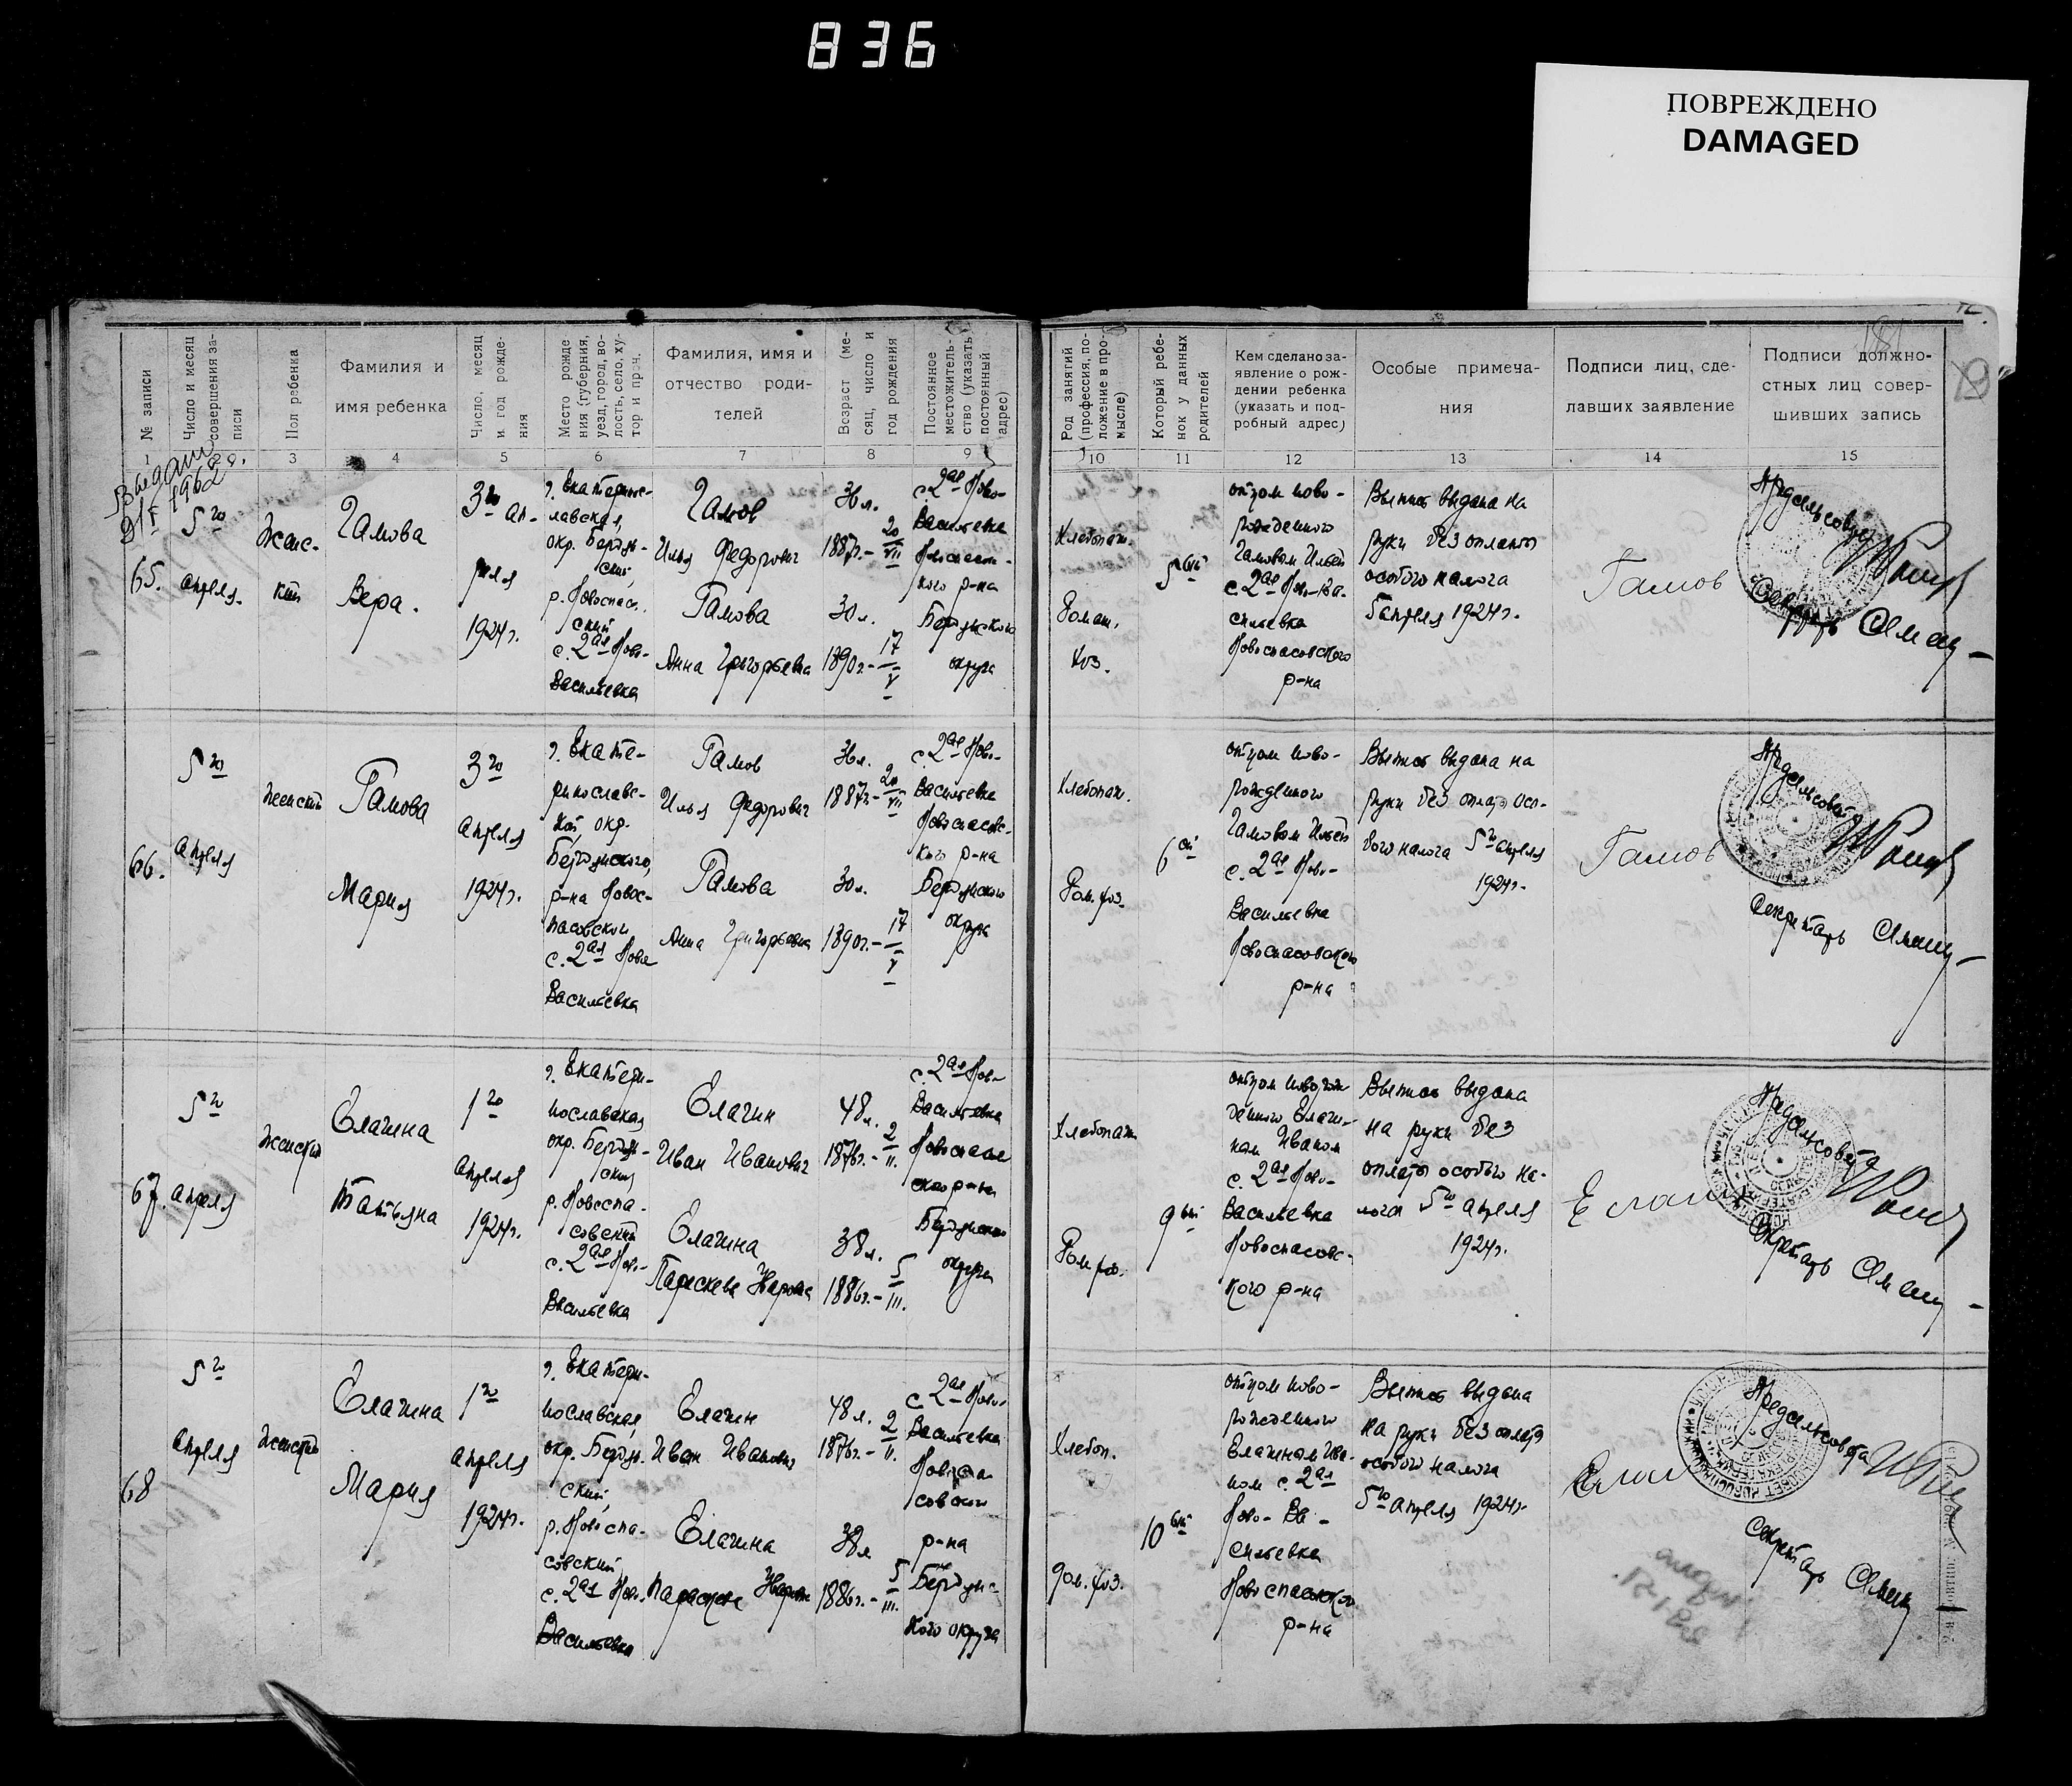 836
ПОВРЕЖДЕНО
DAMAGED
№ записи
Число и месяц
совершения за-
писи
Пол ребенка
Фамилия и
имя ребенка
Число, месяц
и год рожде-
ния
Место рожде
ния (губерния,
уезд, город, во-
лость, село, ху-
тор и проч.
Фамилия, имя и
отчество роди-
телей
Возраст (ме-
сяц, число и
год рождения
Постоянное
местожитель-
ство (указать
постоянный
адрес)
Род занятий
(профессия, по-
ложение в про-
мысле)
Который ребе-
нок у данных
родителей
Кем сделано за-
явление о рож-
дении ребенка
(указать и под-
робный адрес)
Особые примеча-
ния
Подписи лиц, сде-
лавших заявление
Подписи должно-
стных лиц совер-
шивших запись
1 3 4 5 6 7 8 9 10 11 12 13 14 15
65.
5го
апреля.
Женс-
кий
Гамова
Вера.
3го ап-
реля
1924г.
г. Екатеринос-
лавская,
окр. Бердян-
ский,
р. Новоспас.
ский
с. 2ая Ново-
Васильевка
Гамов
Илья Федорович
Гамова
Анна Григорьевна
36л.
1887г.- 20/VII
30л.
1890г.- 17/V
с. 2ая Ново-
Васильевка
Новоспасс-
кого р-на
Бердянского
округа
Хлебопаш.
Домаш.
хоз.
5ый
отцом ново-
рожденного
Гамовым Ильей
с. 2ая Ново-Ва-
сильевка
Новоспасовского
р-на
Выпись выдана на
руки без оплаты
особого налога
5 апреля 1924г.
Гамов
Предсельсовета
Секретарь
66.
5го
апреля
женский
Гамова
Мария
3го
апреля
1924г.
г. Екате-
ринославс-
кой, окр.
Бердянского,
р-на Новос-
пасовского
с. 2ая Ново
Васильевка
Гамов
Илья Федорович
Гамова
Анна Григорьевна
36л.
1887г.- 20/VII
30л.
1890г.- 17/V
с. 2ая Ново-
Васильевка
Новоспасовс-
кого р-на
Бердянского
округа
Хлебопаш.
Дом. хоз.
6ой
отцом ново-
рожденного
Гамовым Ильей
с. 2ая Ново-
Васильевка
Новоспасовского
р-на
Выпись выдана на
руки без оплаты осо-
бого налога 5го апреля
1924г.
Гамов
Предсельсовета
Секретарь
67.
5го
апреля
женский
Елагина
Татьяна
1го
апреля
1924г.
г. Екатери-
нославская
окр. Бердян-
ский
р. Новоспа-
совский
с. 2ая Ново-
Васильевка
Елагин
Иван Иванович
Елагина
Параскева
48л.
1876г.- 2/II.
38л.
1886г.- 5/III.
с. 2ая Ново-
Васильевка
Новоспасов
ского р-на
Бердянского
округа
Хлебопаш
Дом. хоз.
9ый
отцом новорож
денного Елаги-
ным Иваном
с. 2ая Ново-
Васильевка
Новоспасовс-
кого р-на
Выпись выдана
на руки без
оплаты особого на-
лога 5го апреля
1924г.
Елагин
Предсельсовета
Секретарь
68
5го
апреля
женский
Елагина
Мария
1го
апреля
1924г.
г. Екатери-
нославская,
окр. Бердян.
ский,
р. Новоспа-
совский
с. 2ая Ново-
Васильевка
Елагин
Иван Иванович
Елагина
Параскева
48л.
1876г.- 2/II.
38л
1886г.- 5/III.
с. 2ая Ново-
Васильевка
Новоспа-
совского
р-на
Бердянс-
кого округа
Хлебоп.
дом. хоз.
10ый
отцом ново-
рожденного
Елагиным Ива-
ном с. 2ая
Ново-Ва-
сильевка
Новоспасовского
р-на
Выпись выдана
на руки без оплаты
особого налога
5го апреля 1924г.
Предсельсовета
Секретарь